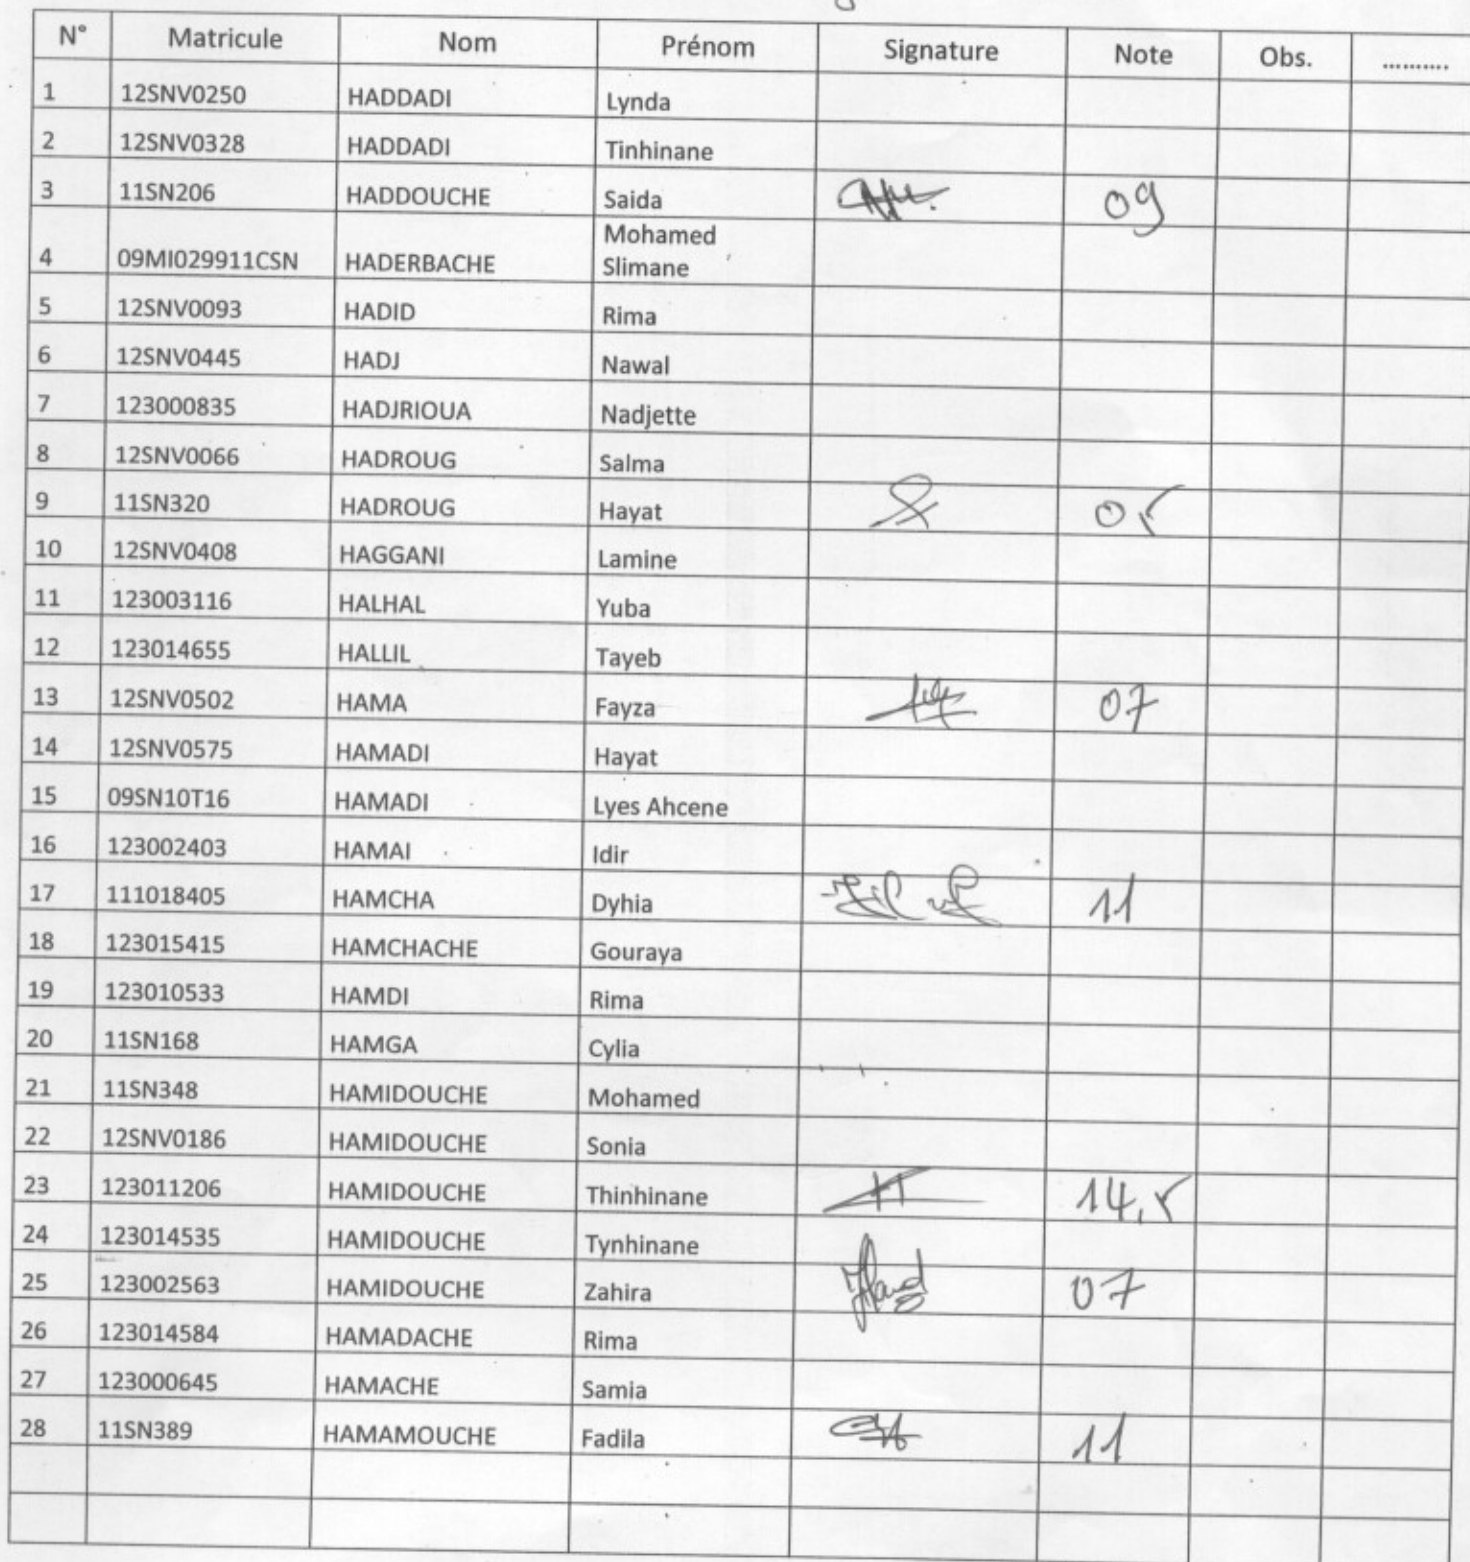 N° Matricule Nom Prénom Signature Note Obs. ..........
1 12SNV0250 HADDADI Lynda
2 12SNV0328 HADDADI Tinhinane
3 11SN206 HADDOUCHE Saida 09
4 09MI029911CSN HADERBACHE Mohamed Slimane
5 12SNV0093 HADID Rima
6 12SNV0445 HADJ Nawal
7 123000835 HADJRIOUA Nadjette
8 12SNV0066 HADROUG Salma
9 11SN320 HADROUG Hayat 05
10 12SNV0408 HAGGANI Lamine
11 123003116 HALHAL Yuba
12 123014655 HALLIL Tayeb
13 12SNV0502 HAMA Fayza 07
14 12SNV0575 HAMADI Hayat
15 09SN10T16 HAMADI Lyes Ahcene
16 123002403 HAMAI Idir
17 111018405 HAMCHA Dyhia 11
18 123015415 HAMCHACHE Gouraya
19 123010533 HAMDI Rima
20 11SN168 HAMGA Cylia
21 11SN348 HAMIDOUCHE Mohamed
22 12SNV0186 HAMIDOUCHE Sonia
23 123011206 HAMIDOUCHE Thinhinane 14,5
24 123014535 HAMIDOUCHE Tynhinane
25 123002563 HAMIDOUCHE Zahira 07
26 123014584 HAMADACHE Rima
27 123000645 HAMACHE Samia
28 11SN389 HAMAMOUCHE Fadila 11